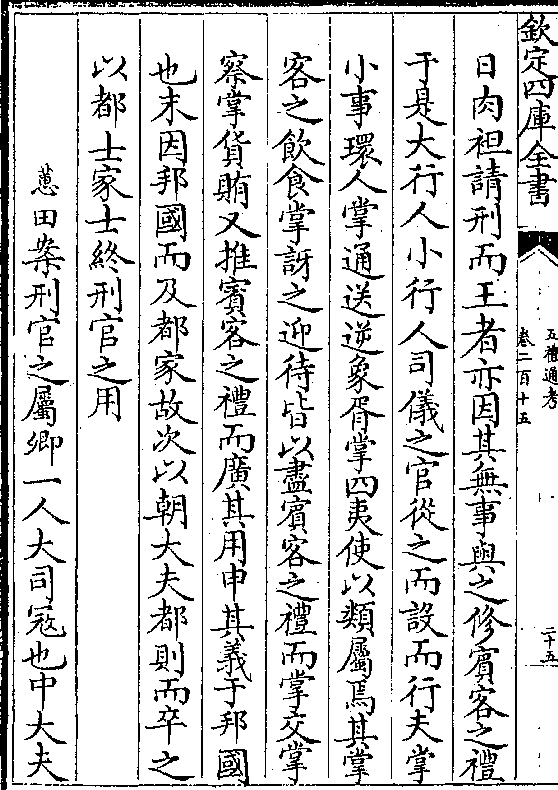 欽定四庫全書
五禮通考
卷二百十五
二十五
日肉袒請刑而王者亦因其無事與之修賓客之禮
于是大行人小行人司儀之官從之而設而行夫掌
小事環人掌通送逆象胥掌四夷使以類屬焉其掌
客之飲食掌訝之迎待皆以盡賓客之禮而掌交掌
察掌貨賄又推賓客之禮而廣其用申其義于邦國
也末因邦國而及都家故次以朝大夫都則而卒之
以都士家士終刑官之用
蕙田案刑官之屬卿一人大司寇也中大夫